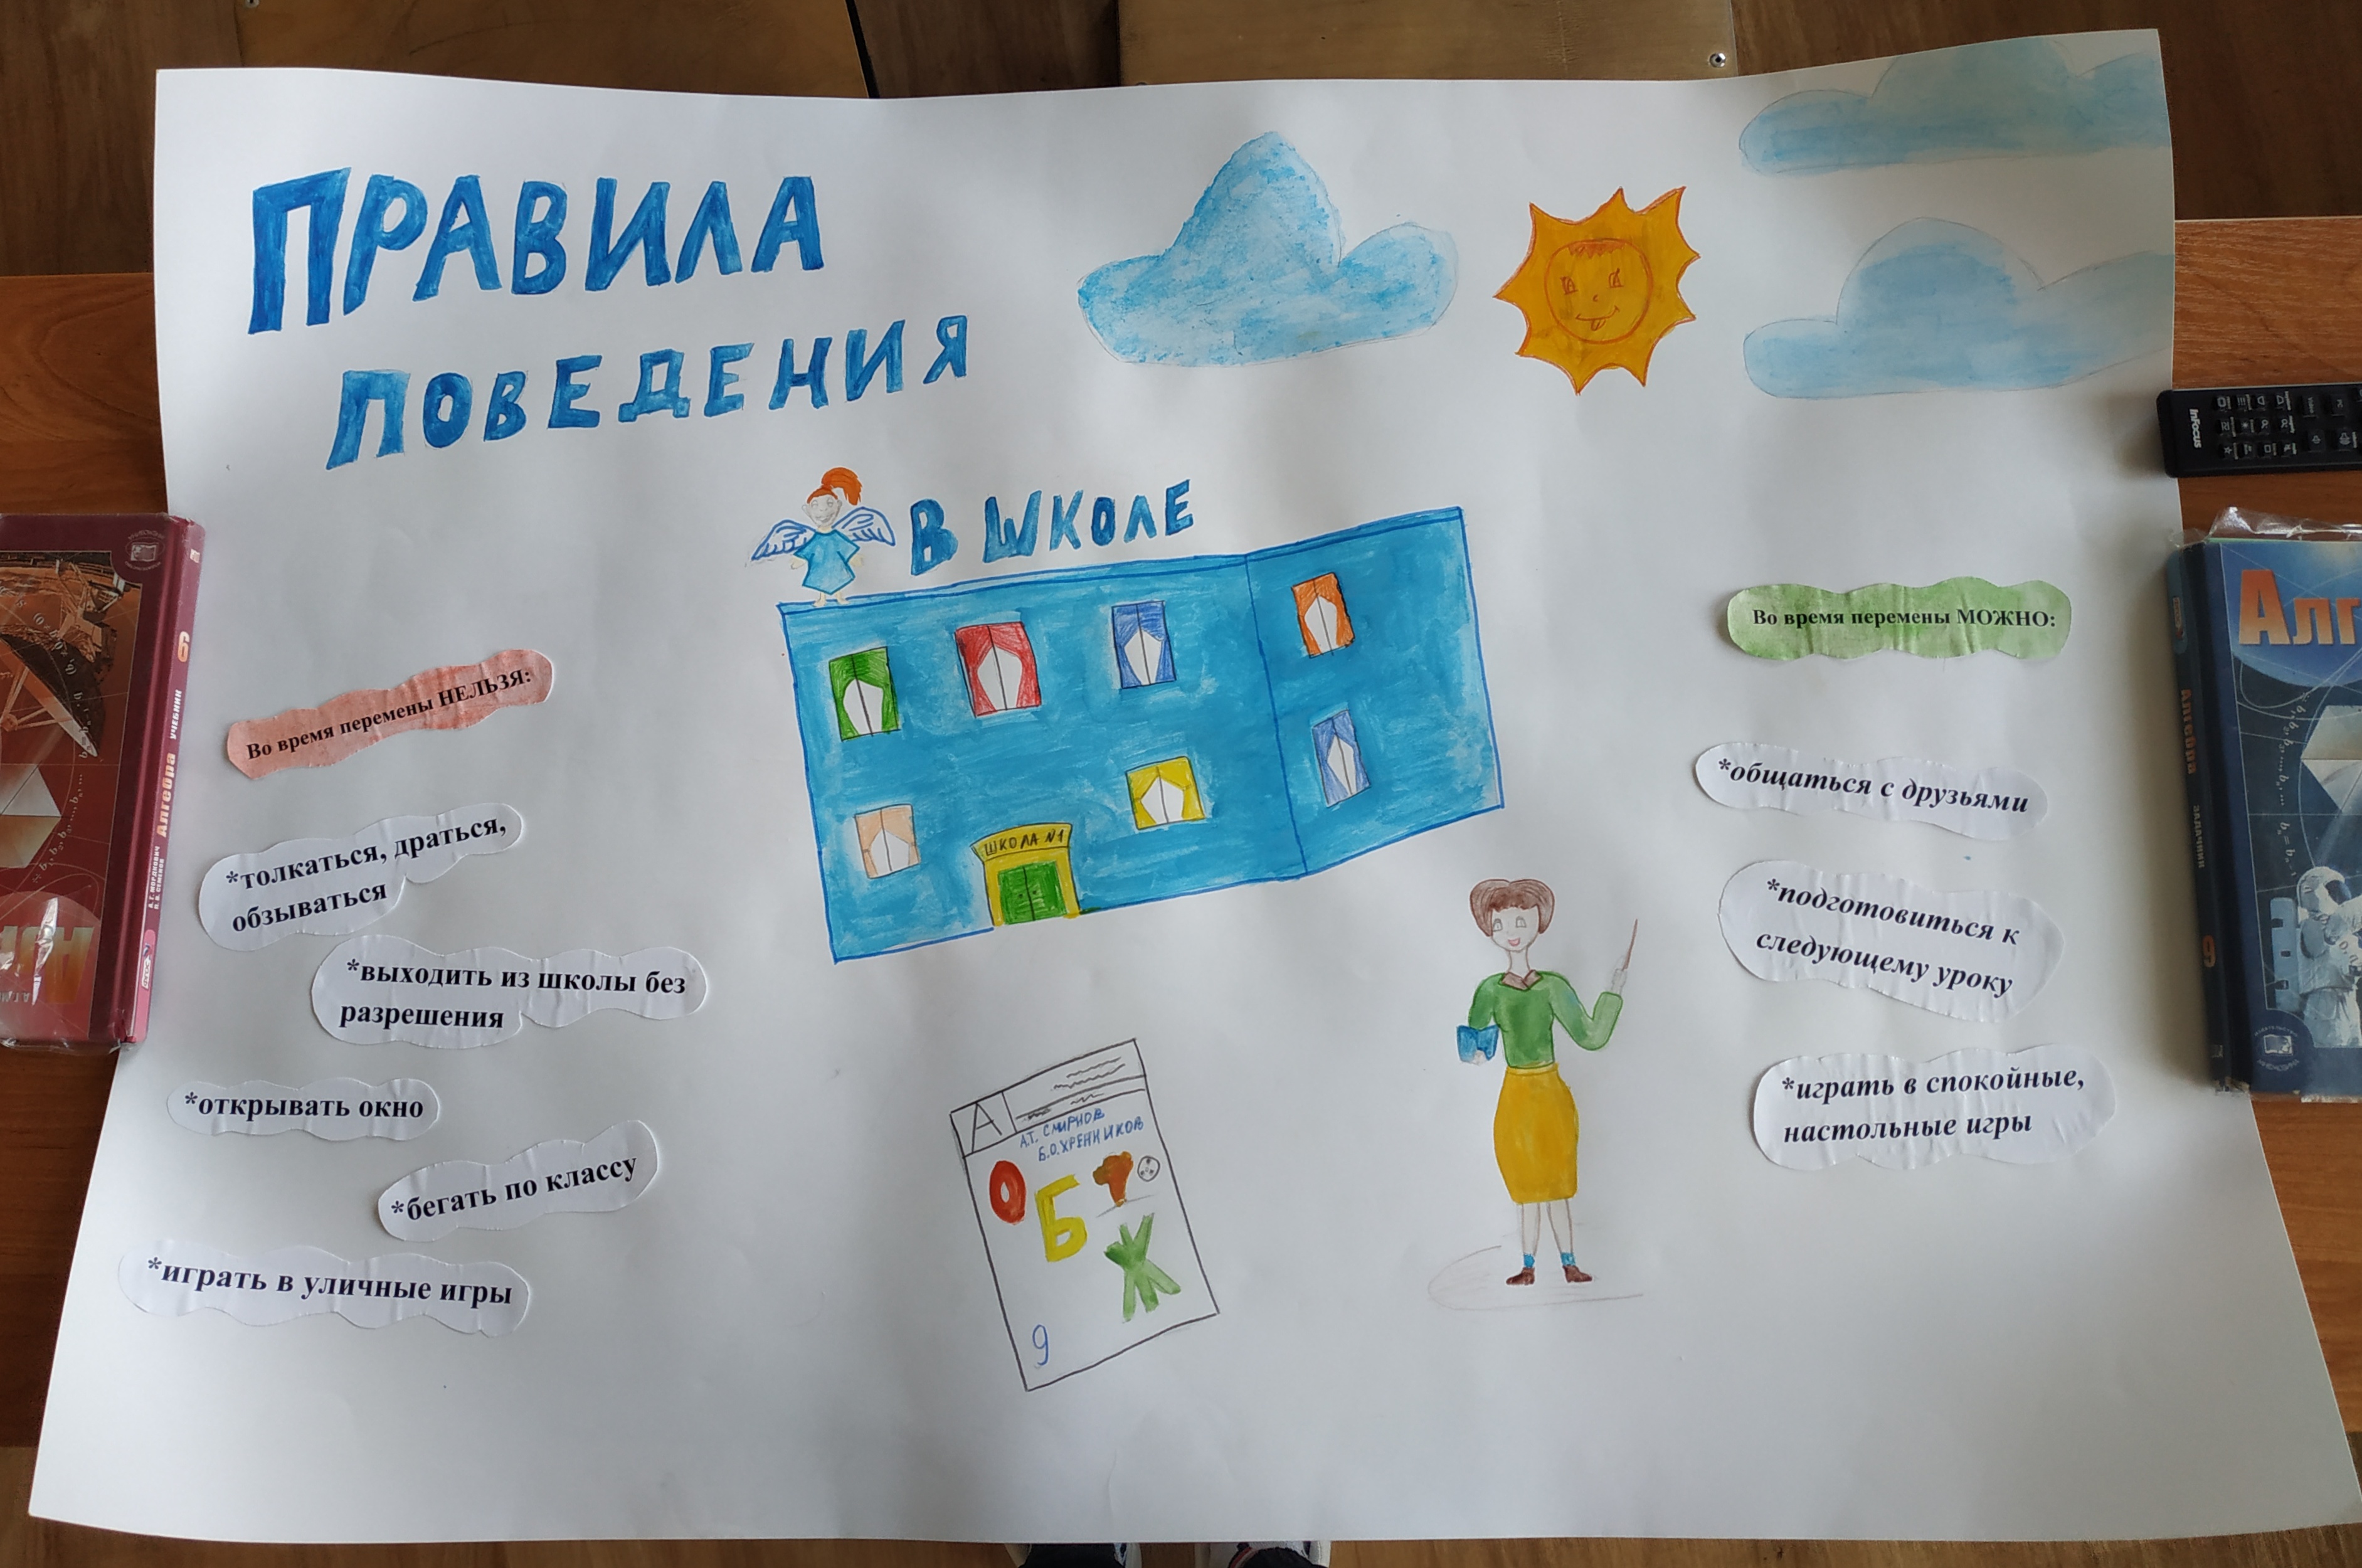 ПРАВИЛА
ПОВЕДЕНИЯ
В ШКОЛЕ
ШКОЛА №1
Во время перемены НЕЛЬЗЯ:
*толкаться, драться,
обзываться
*выходить из школы без
разрешения
*открывать окно
*бегать по классу
*играть в уличные игры
Во время перемены МОЖНО:
*общаться с друзьями
*подготовиться к
следующему уроку
*играть в спокойные,
настольные игры
А
А.Т. СМИРНОВ
Б.О. ХРЕННИКОВ
ОБЖ
9
Алгебра
УЧЕБНИК
9
А.Г. МОРДКОВИЧ
П.В. СЕМЕНОВ
Алг
Алгебра
ЗАДАЧНИК
9
InFocus